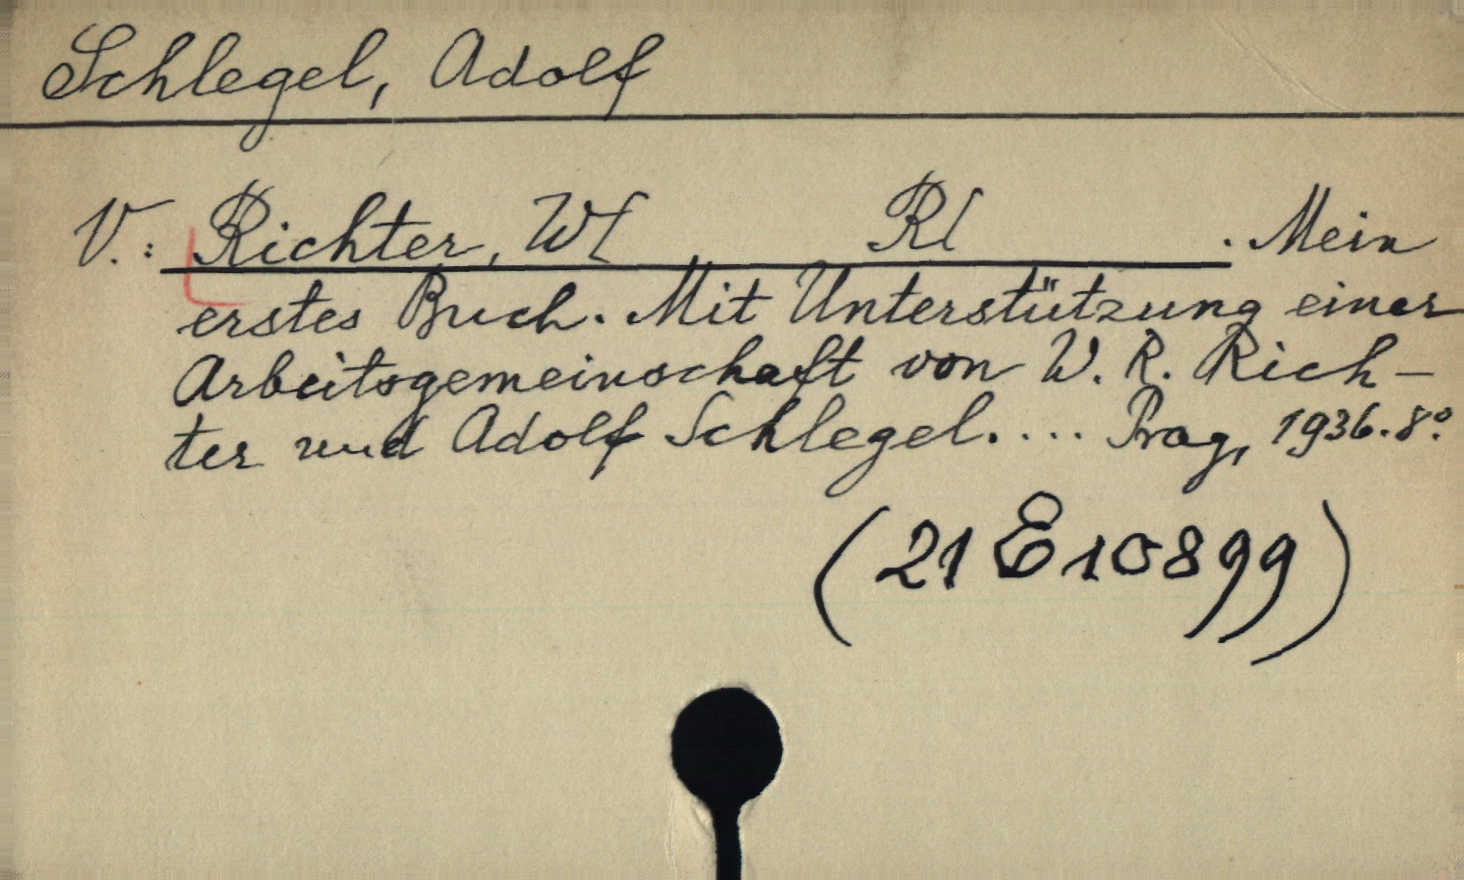 Schlegel, Adolf
V.: Richter, W[ R[ . Mein
erstes Buch. Mit Unterstützung einer
Arbeitsgemeinschaft von W. R. Rich-
ter und Adolf Schlegel. ... Prag, 1936. 8°.
(21 E 10899)